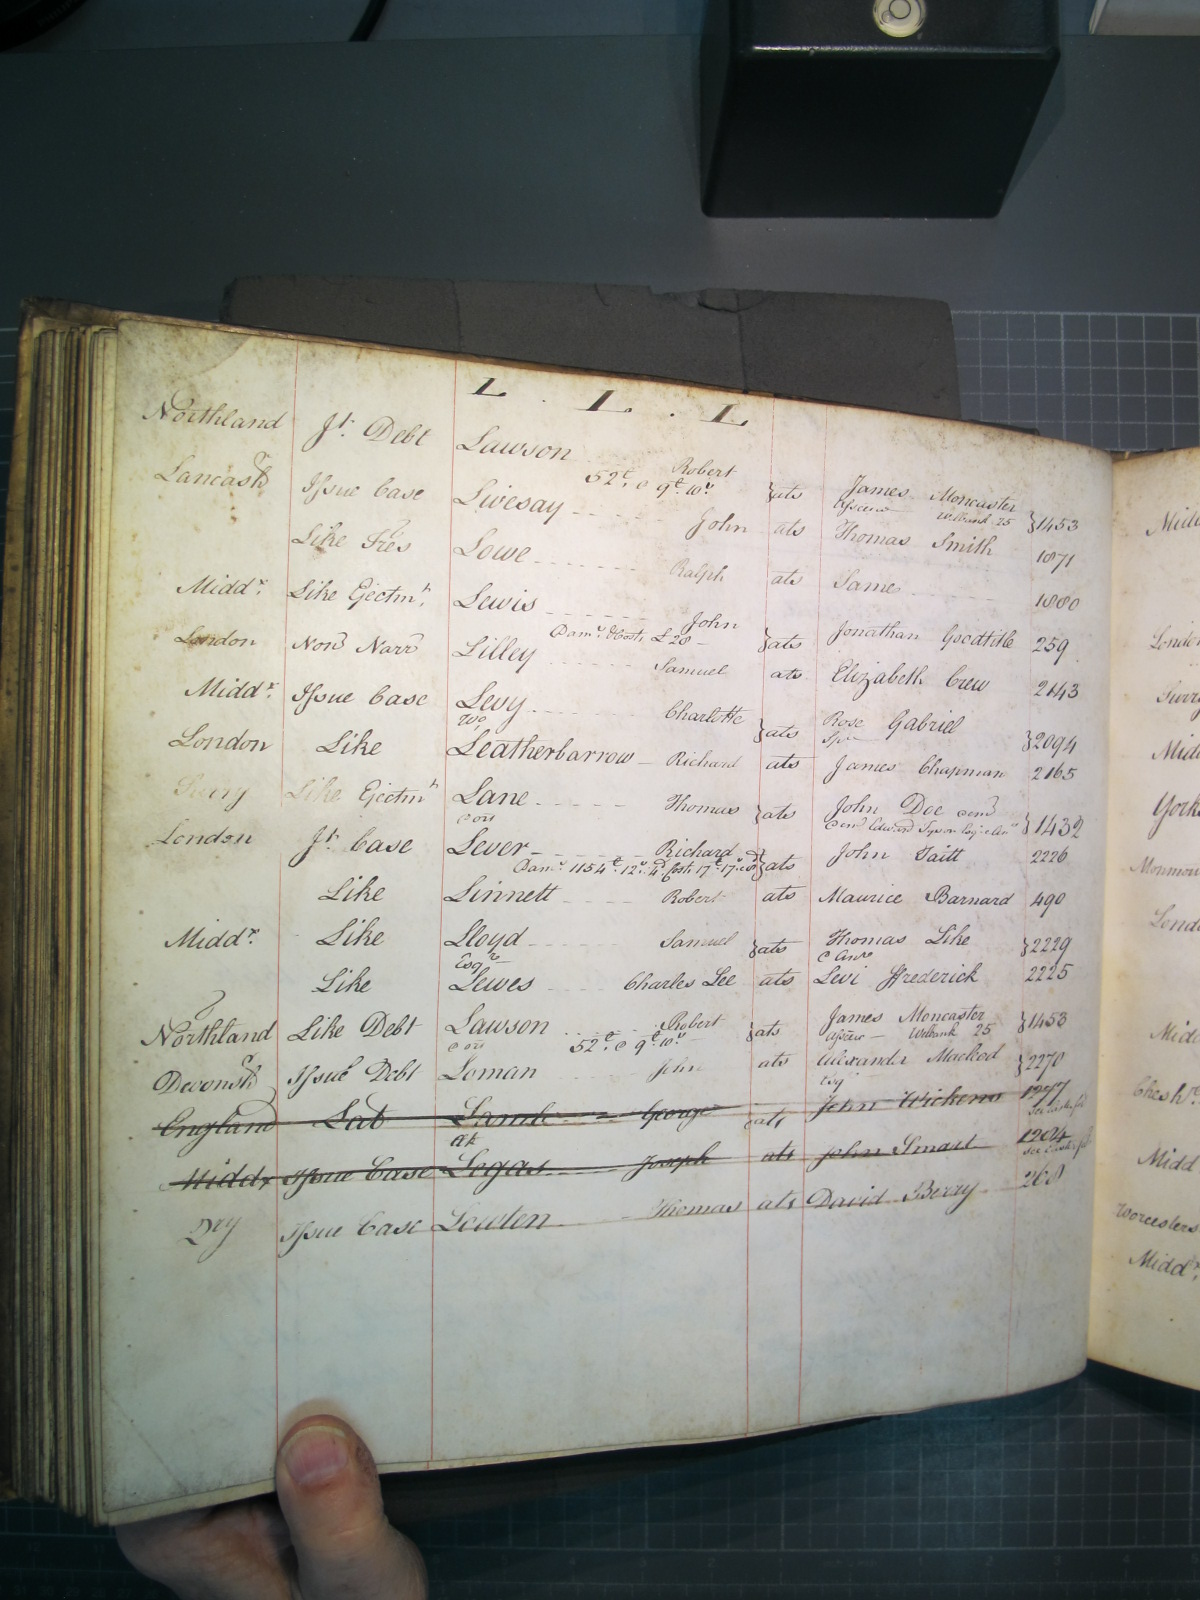 L . L . L
Northland Jt. Debt Lawson Robert }ats James Moncaster }1453
52£. @ 9£. 10s. Wilbank 25
Lancash Issue Case Livesay John ats Thomas Smith 1871
Like Tres Lowe Ralph ats Same 1880
Middx. Like Ejectmt. Lewis John }ats Jonathan Goodtitle 259
Dams. & Costs £28
London Non Narr Lilley Samuel ats Elizabeth Crew 2143
Middx. Issue Case Levy Charlotte }ats Rose Gabriel }2094
Wo. Spr
London Like Leatherbarrow Richard ats James Chapman 2165
Surry Like Ejectmt Lane Thomas }ats John Doe }1432
@ ors
London Jt. Case Lever Richard }ats John Taitt 2226
Dams. 1154£. 12s. 4d. Costs 17£. 17s.
Like Linnett Robert ats Maurice Barnard 490
Middx. Like Lloyd Samuel }ats Thomas Like }2229
Esqr
Like Lewes Charles Lee ats Levi Frederick 2225
Northland Like Debt Lawson Robert }ats James Moncaster }1453
@ ors 52£. @ 9£. 10s. Wilbank 25
Devonsh Issue Debt Loman John ats Alexander Macleod }2270
Esqr
England Lat Lamb George ats John Wickens 1277
Middx Issue Case Legas Joseph ats John Smart 1204
Dry Issue Case Lowten Thomas ats David Berry 268
Midd
London
Surry
Midd
Yorks
Monmou
Lond
Midd
Chesh
Midd
Worcesters
Middx.